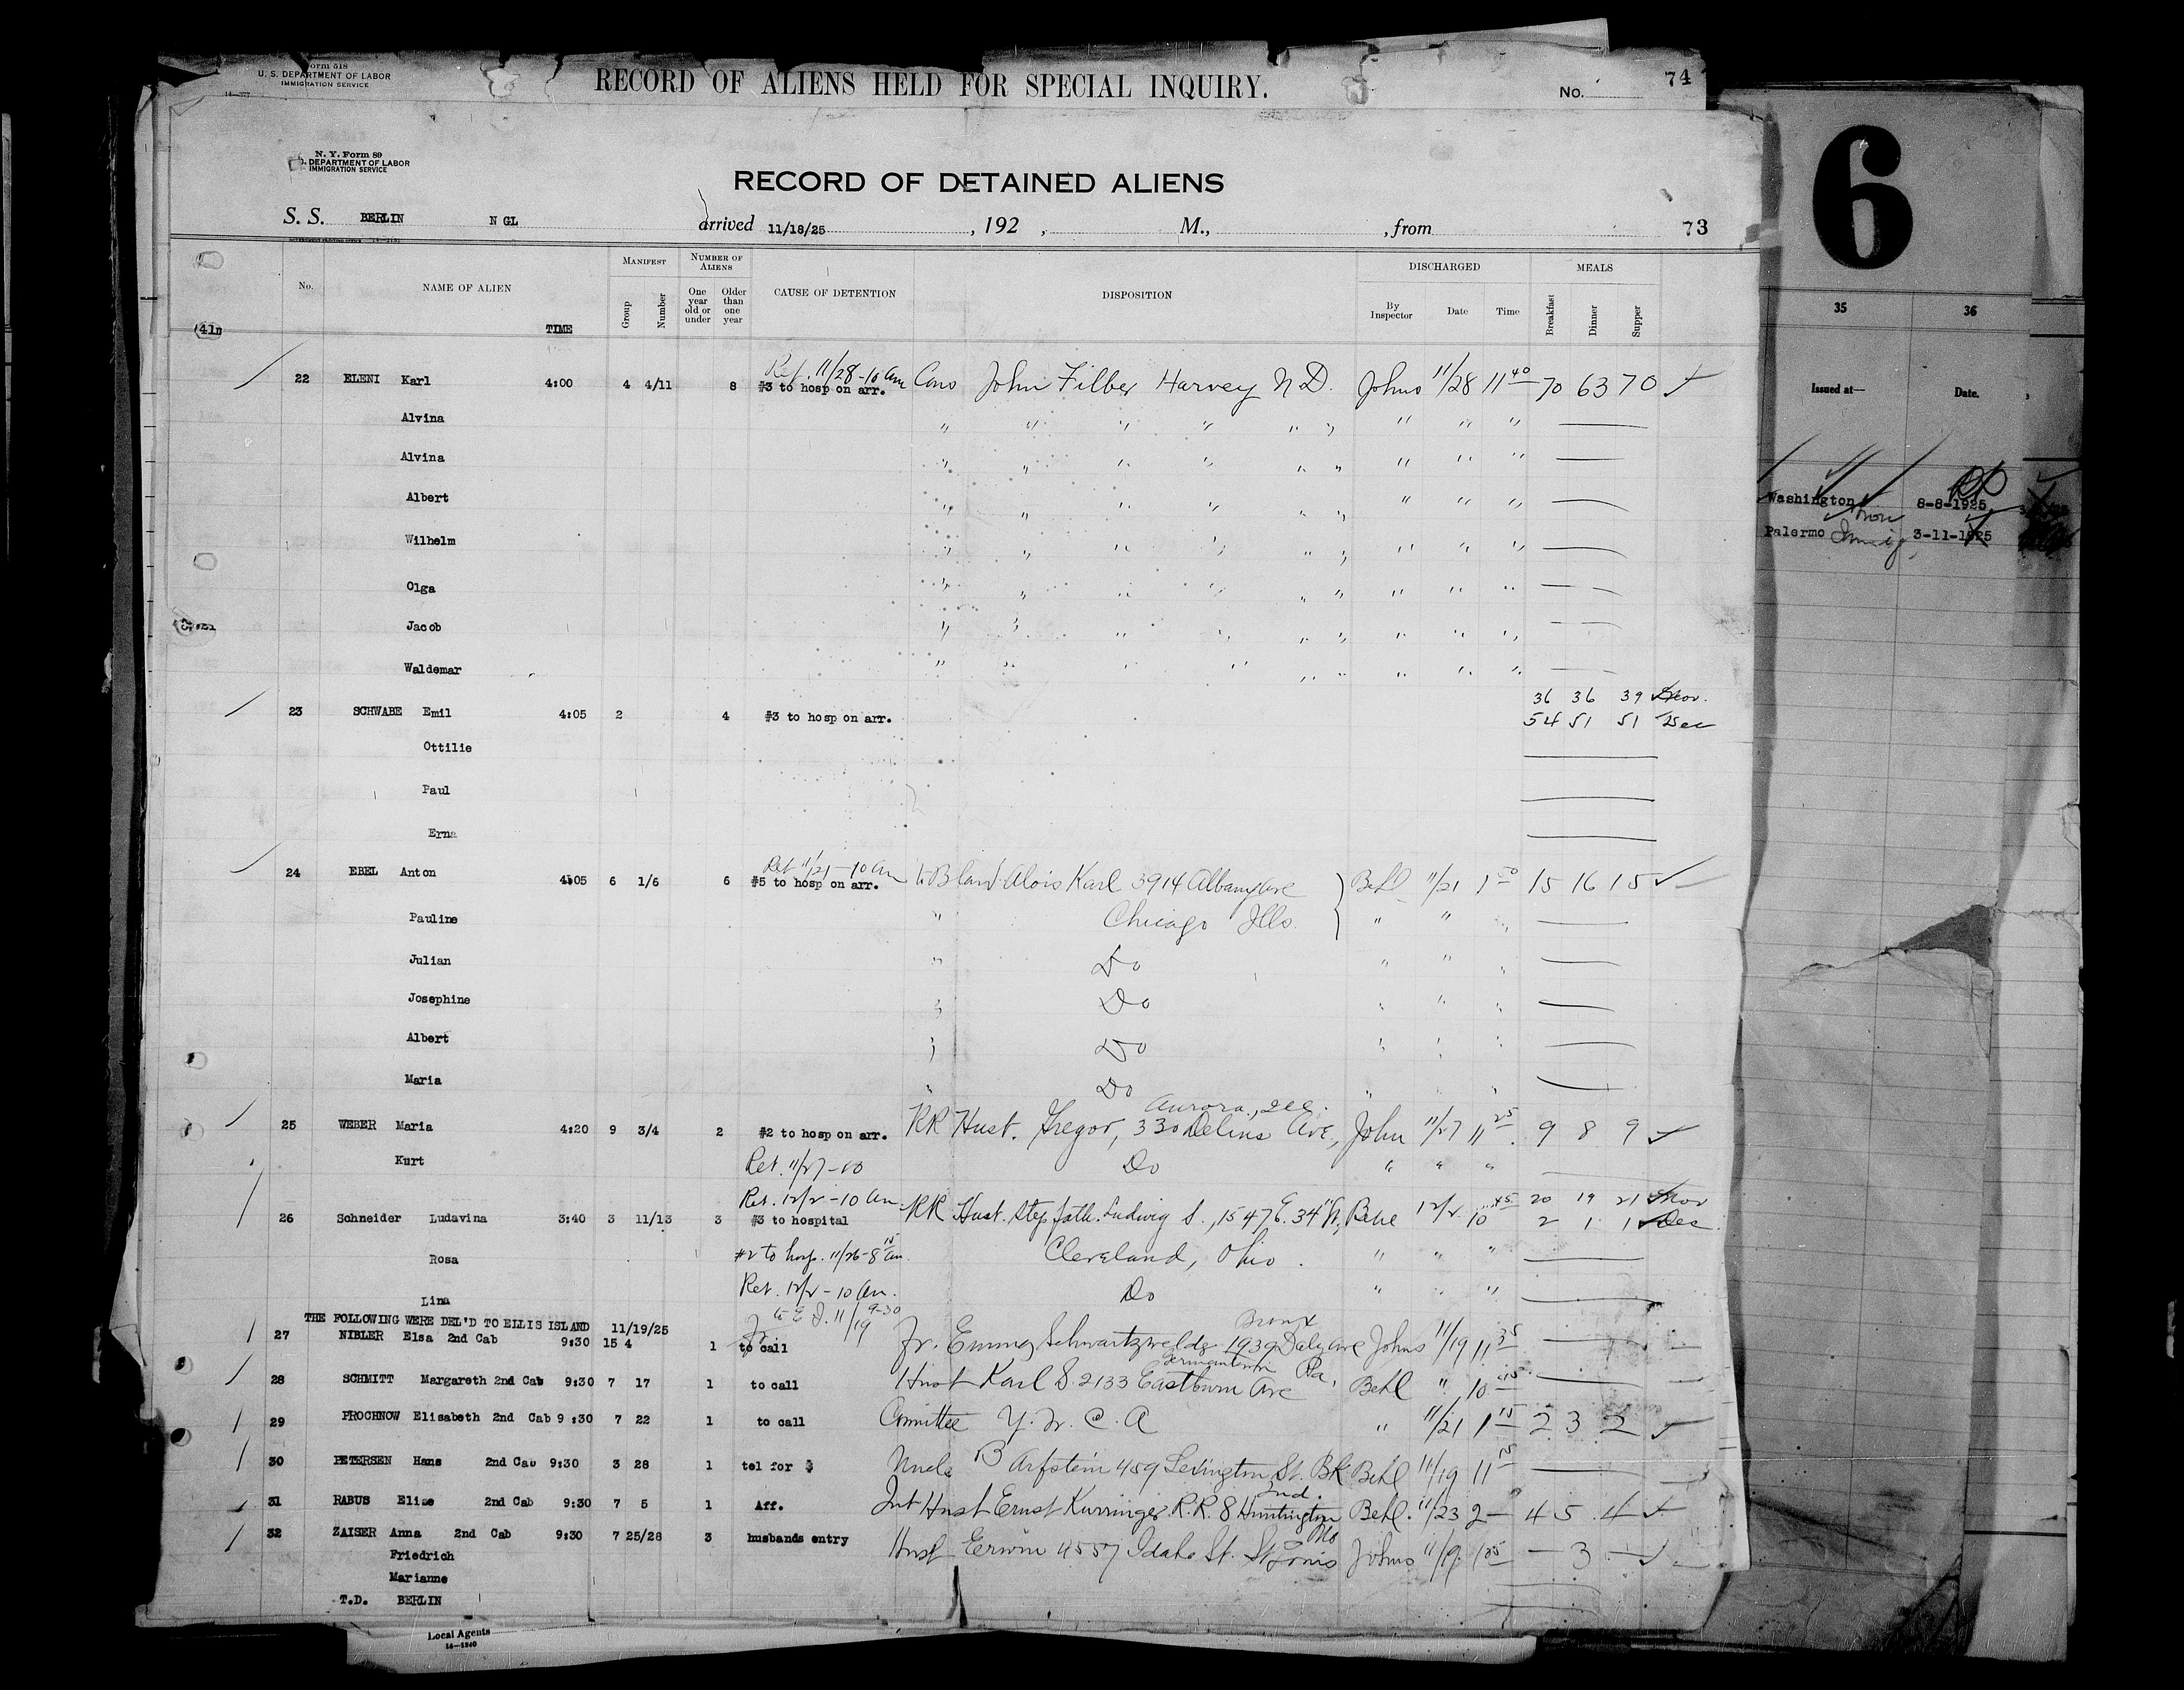 Form 518
U. S. DEPARTMENT OF LABOR
IMMIGRATION SERVICE
RECORD OF ALIENS HELD FOR SPECIAL INQUIRY.
No. 74
N. Y. Form 89
DEPARTMENT OF LABOR
IMMIGRATION SERVICE
RECORD OF DETAINED ALIENS
S. S. BERLIN N GL arrived 11/18/25, 192 , M., , from 73
No. NAME OF ALIEN TIME
MANIFEST Group Number
NUMBER OF ALIENS One year old or under Older than one year
CAUSE OF DETENTION
DISPOSITION
DISCHARGED By Inspector Date Time
MEALS Breakfast Dinner Supper
Ret. 11/28-10 am
22 ELENI Karl 4:00 4 4/11 8 #3 to hosp on arr. John Filber Harvey N D. Johns 11/28 11 40 70 63 70 ✓
Alvina " " " " " " " " "
Alvina " " " " " " " " "
Albert " " " " " " " " "
Wilhelm " " " " " " " " "
Olga " " " " " " " " "
Jacob " " " " " " " " "
Waldemar " " " " " " " " "
36 36 39 Nov.
23 SCHWABE Emil 4:05 2 4 #3 to hosp on arr. 54 51 51 Dec
Ottilie
Paul
Erna
Ret 11/21-10 am
24 EBEL Anton 4:05 6 1/6 6 #5 to hosp on arr. Alois Karl 3914 Albany Ave Behl 11/21 15 16 15 ✓
Pauline " Chicago Ills. " " "
Julian " Do " " "
Josephine " Do " " "
Albert " Do " " "
Maria " Do " " "
Aurora, Ill.
25 WEBER Maria 4:20 9 3/4 2 #2 to hosp on arr. RR Husb. Gregor, 330 Ave, John 11/27 11 25 9 8 9 ✓
Kurt Ret. 11/27-10 Do " " "
Ret. 12/2-10 am. 20 19 21 Nov
26 Schneider Ludavina 3:40 3 11/13 3 #3 to hospital RR Husb. Stepfath. Ludwig S., 1547 E. 34" 12/2 10 45 2 1 1 Dec
Rosa #2 to hosp. 11/26-8 15 am. Cleveland, Ohio. " " "
Lina Ret. 12/2-10 am. Do " " "
THE FOLLOWING WERE DEL'D TO ELLIS ISLAND 11/19/25
to E I. 11/19 9-30
Bronx
27 NIBLER Elsa 2nd Cab 9:30 15 4 1 to call Fr. 1939 Daly Ave Johns 11/19 11 35
Germantown Pa,
28 SCHMITT Margareth 2nd Cab 9:30 7 17 1 to call Husb Karl S. 2133 Eastburn Ave Behl " 10 15
29 PROCHNOW Elisabeth 2nd Cab 9:30 7 22 1 to call Comittee Y. W. C. A " 11/21 1 15 2 3 2 ✓
30 PETERSEN Hans 2nd Cab 9:30 3 28 1 tel for $ Uncle B Arfstein 459 Lexington St. Bk Behl 11/19 11 15
Ind.
31 RABUS Elise 2nd Cab 9:30 7 5 1 Aff. Int Husb Ernst Kurringer R.R. 8 Huntington Behl. 11/23 2 - 4 5 4 ✓
Mo
32 ZAISER Anna 2nd Cab 9:30 7 25/28 3 husbands entry Husb Erwin 4557 Idaho St. St Louis Johns 11/19 1 25 - 3 - ✓
Friedrich
Marianne
T.D. BERLIN
Local Agents
14—1240
6
35 36
Issued at— Date.
Washington 8-8-1925
Palermo 3-11-1925